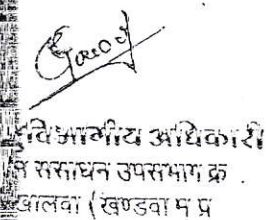 विभागीय अधिकारी
संसाधन उपसंभाग क्र
खालवा (खण्डवा म प्र